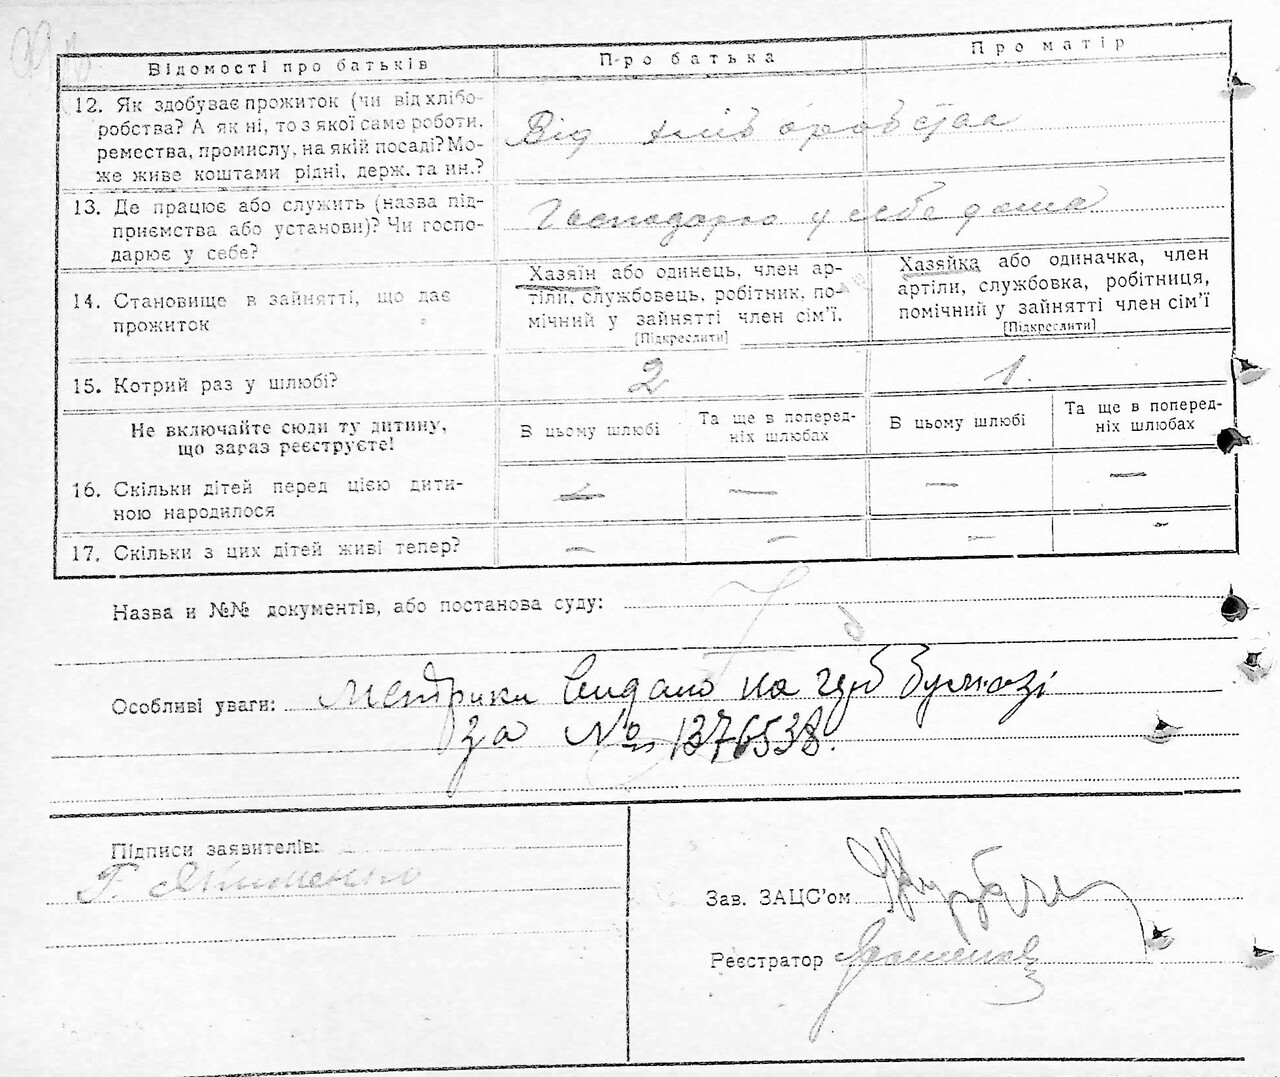 Відомості про батьків
Про батька
Про матір
12. Як здобуває прожиток (чи від хлібо-
робства? А як ні, то з якої саме роботи,
ремества, промислу, на якій посаді? Мо-
же живе коштами рідні, держ. та ин.?
Від хліборобства
13. Де працює або служить (назва під-
приємства або установи)? Чи госпо-
дарює у себе?
Господарю у себе дома
14. Становище в зайнятті, що дає
прожиток
Хазяїн або одинець, член ар-
тіли, службовець, робітник, по-
мічний у зайнятті член сім'ї.
[Підкреслити]
Хазяйка або одиначка, член
артіли, службовка, робітниця,
помічний у зайнятті член сім'ї
[Підкреслити]
15. Котрий раз у шлюбі?
2
1.
Не включайте сюди ту дитину,
що зараз реєструєте!
В цьому шлюбі
Та ще в поперед-
ніх шлюбах
В цьому шлюбі
Та ще в поперед-
ніх шлюбах
16. Скільки дітей перед цією дити-
ною народилося
— — — —
17. Скільки з цих дітей живі тепер?
— — — —
Назва и №№ документів, або постанова суду:
Особливі уваги: Метрики видано на
за № 1376538.
Підписи заявителів:
Г. Якименко
Зав. ЗАЦС'ом
Реєстратор